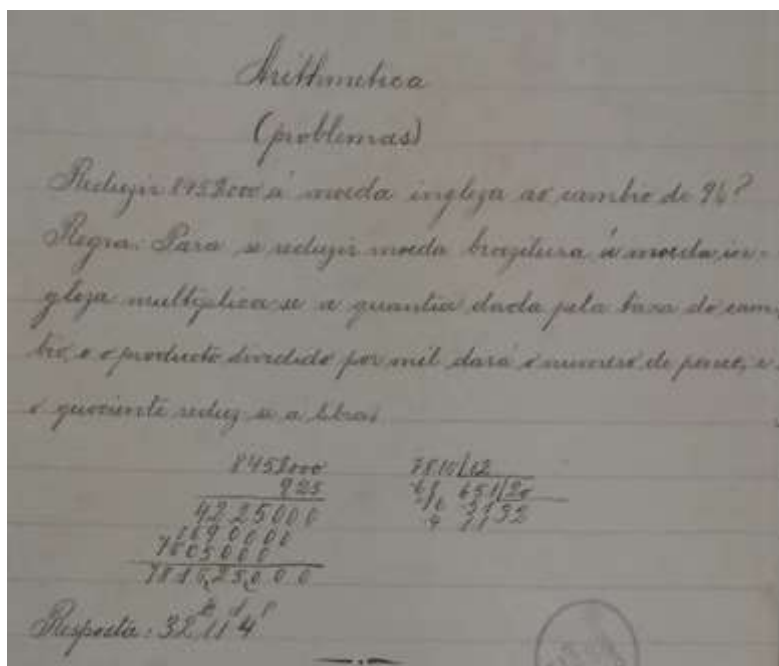 Arithmetica
(problemas)
Reduzir 845$000 á moeda ingleza ao cambio de 9¼?
Regra. Para se reduzir moeda brazileira á moeda in-
gleza multiplica-se a quantia dada pela taxa do cam
bio, e o producto dividido por mil dará o numero de pence, e
o quociente reduz-se a libras
845$000
925
4225000
1690000
7605000
7816,25,000
7816 12
61 651 20
16 51 32
4 11
Resposta: 32 £ 11 s 4 p